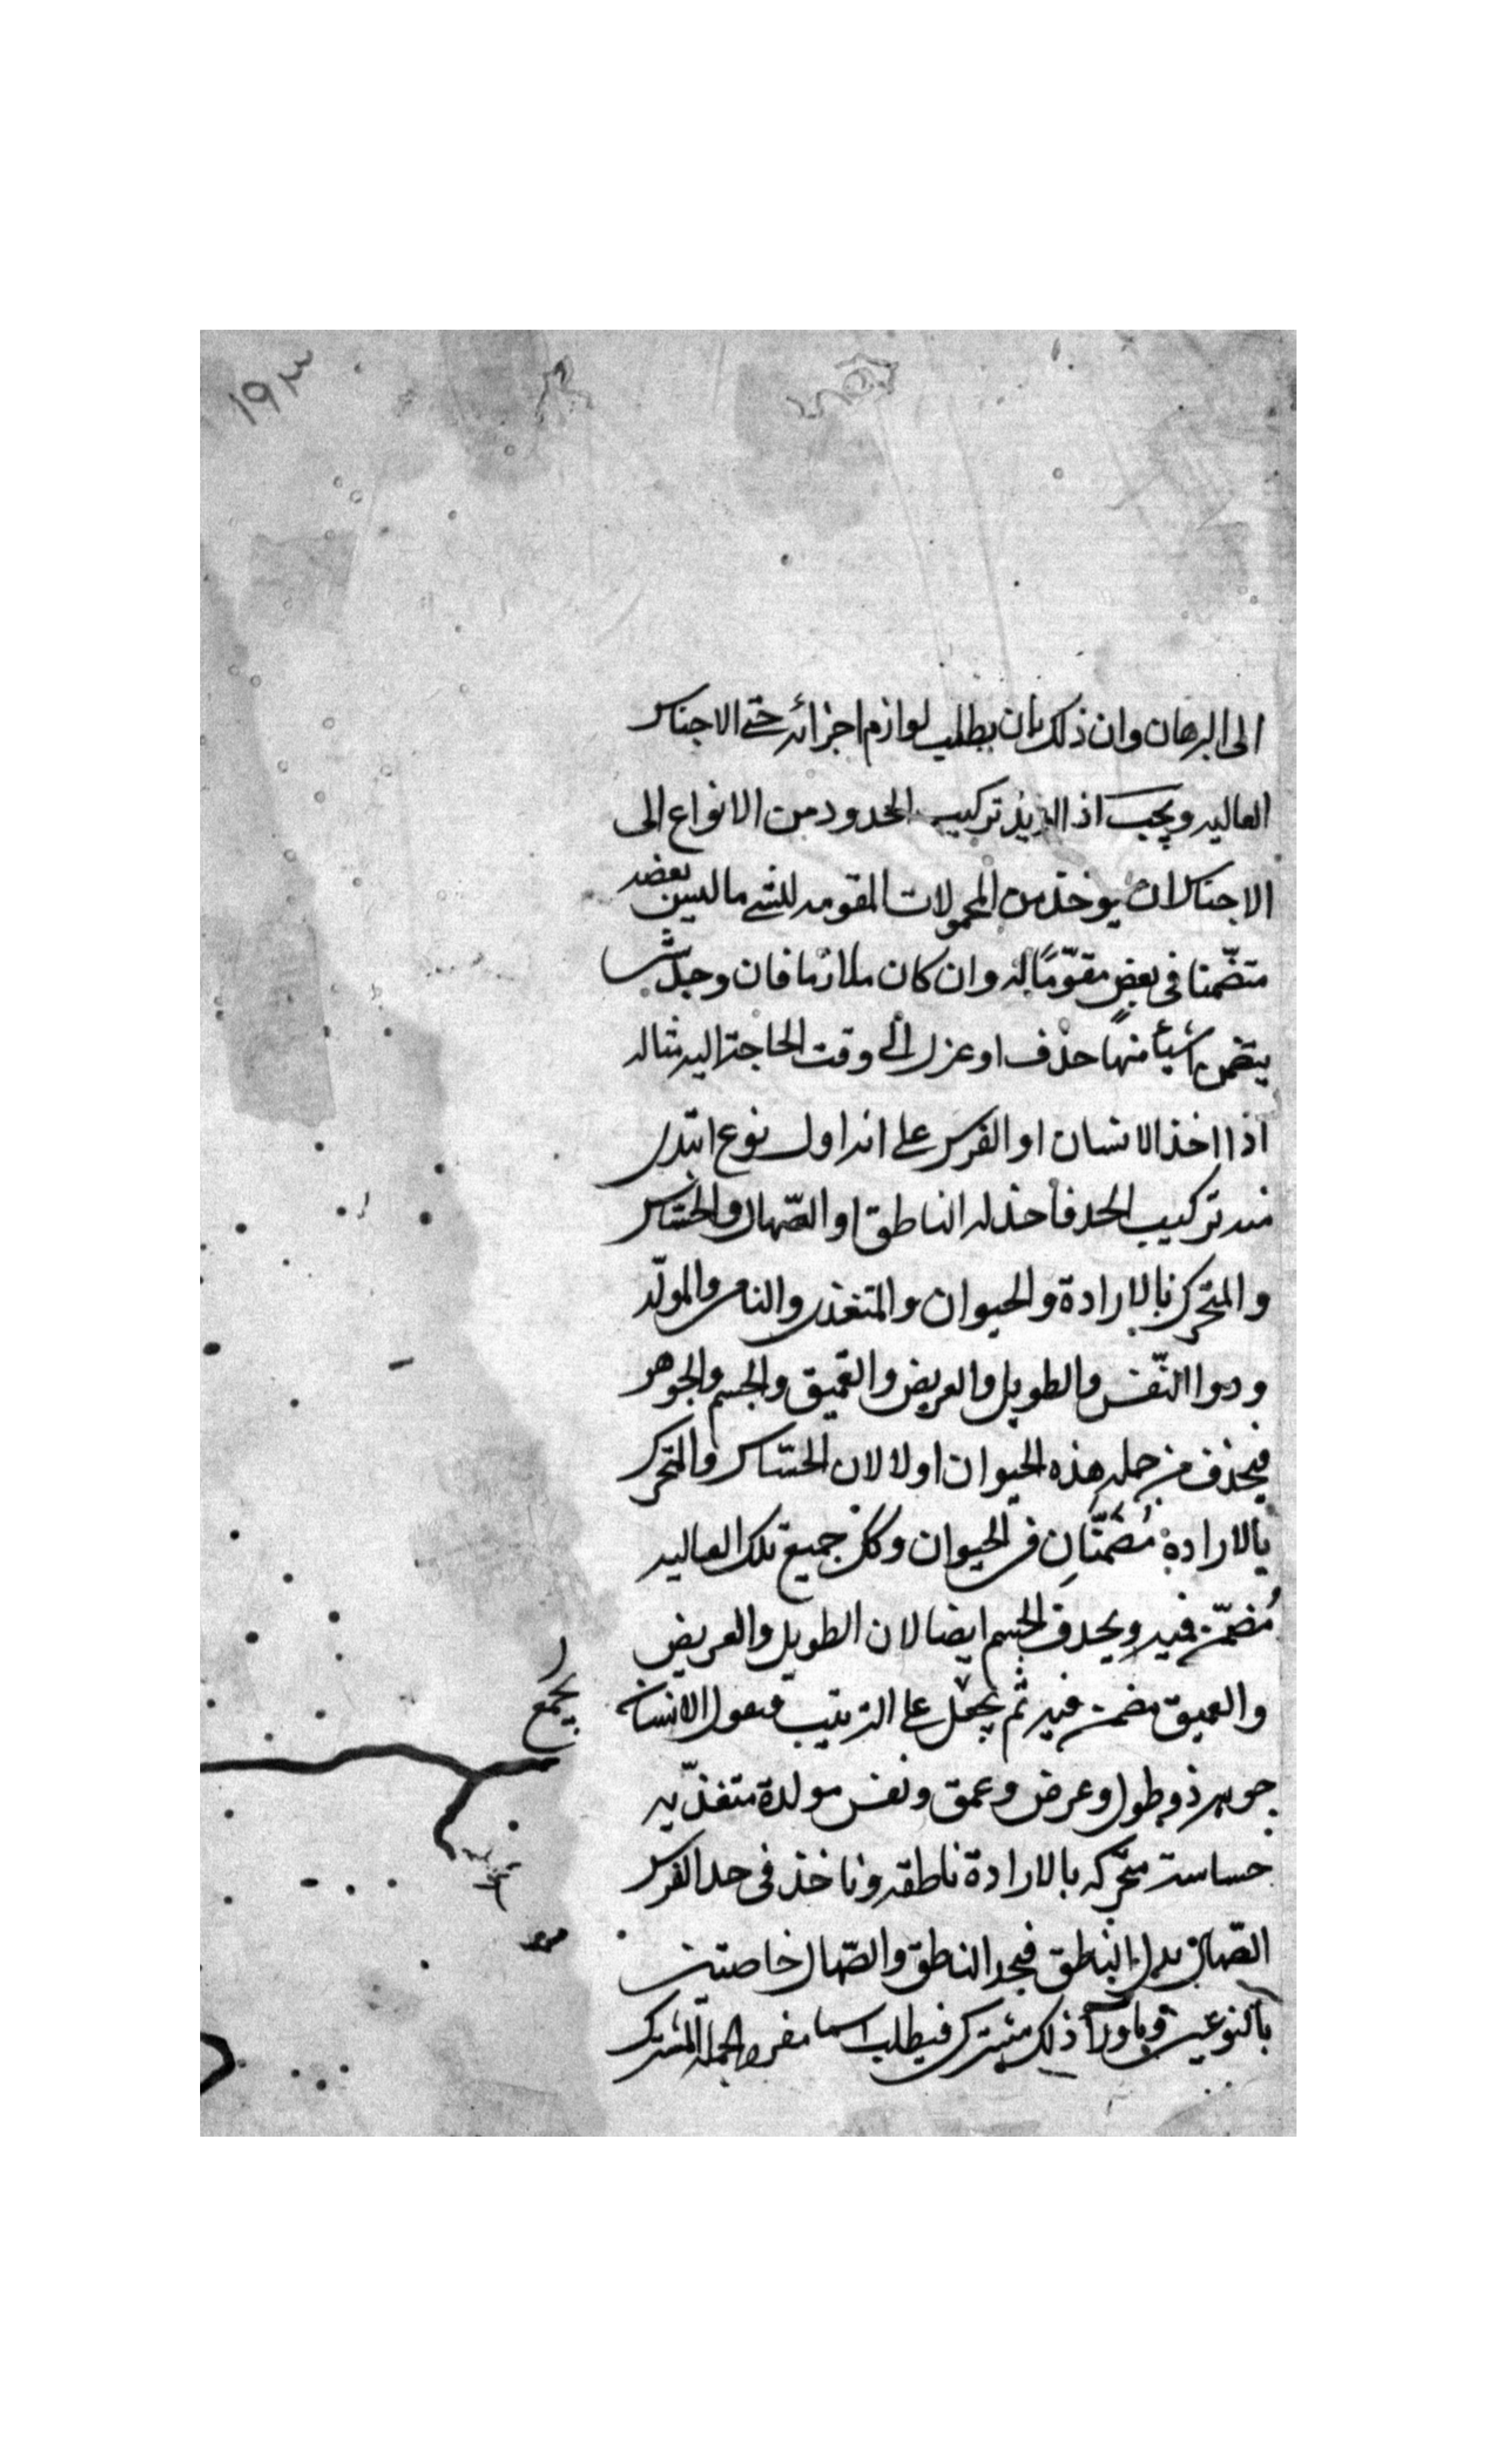 ١٩٣
الى البرهان وان ذلك بان يطلب لوازم اجزائه حتى الاجناس
العاليه ويجب اذا اريد تركيب الحدود من الانواع الى
الاجناس ان يوخذ من المحمولات المقومه للشى ما ليس بعضه
متضمنا فى بعض مقوّمًا له وان كان ملازما فان وجد شيا
يتضمن شيئا منها حذف او عزل الى وقت الحاجة اليه مثاله
اذا اخذ الانسان او الفرس على انه اول نوع ابتدى
منه تركيب الحد فاخذ له الناطق او الصّهال والحسّاس
والمتحرك بالارادة والحيوان والمتغذى والنامى والمولّد
وذوا النّفس والطويل والعريض والعميق والجسم والجوهر
فيحذف من جمله هذه الحيوان اولا لان الحسّاس والمتحرك
بالارادة مُضمّنان فى الحيوان وكك جميع تلك العاليه
مُضمّن فيه ويحذف الجسم ايضا لان الطويل والعريض
والعميق مضمن فيه ثم يحمل على الترتيب فيقول الانسان
يجمع
جوهر ذو طول وعرض وعمق ونفس مولدة متغذّيه
حساسة متحركه بالارادة ناطقه وناخذ فى حد الفرس
الصّهال بدل الناطق فيجد الناطق والصّهال خاصتين
بالنوعين وما ورآ ذلك مشترك فيطلب اسما مفردا لجمله المشترك